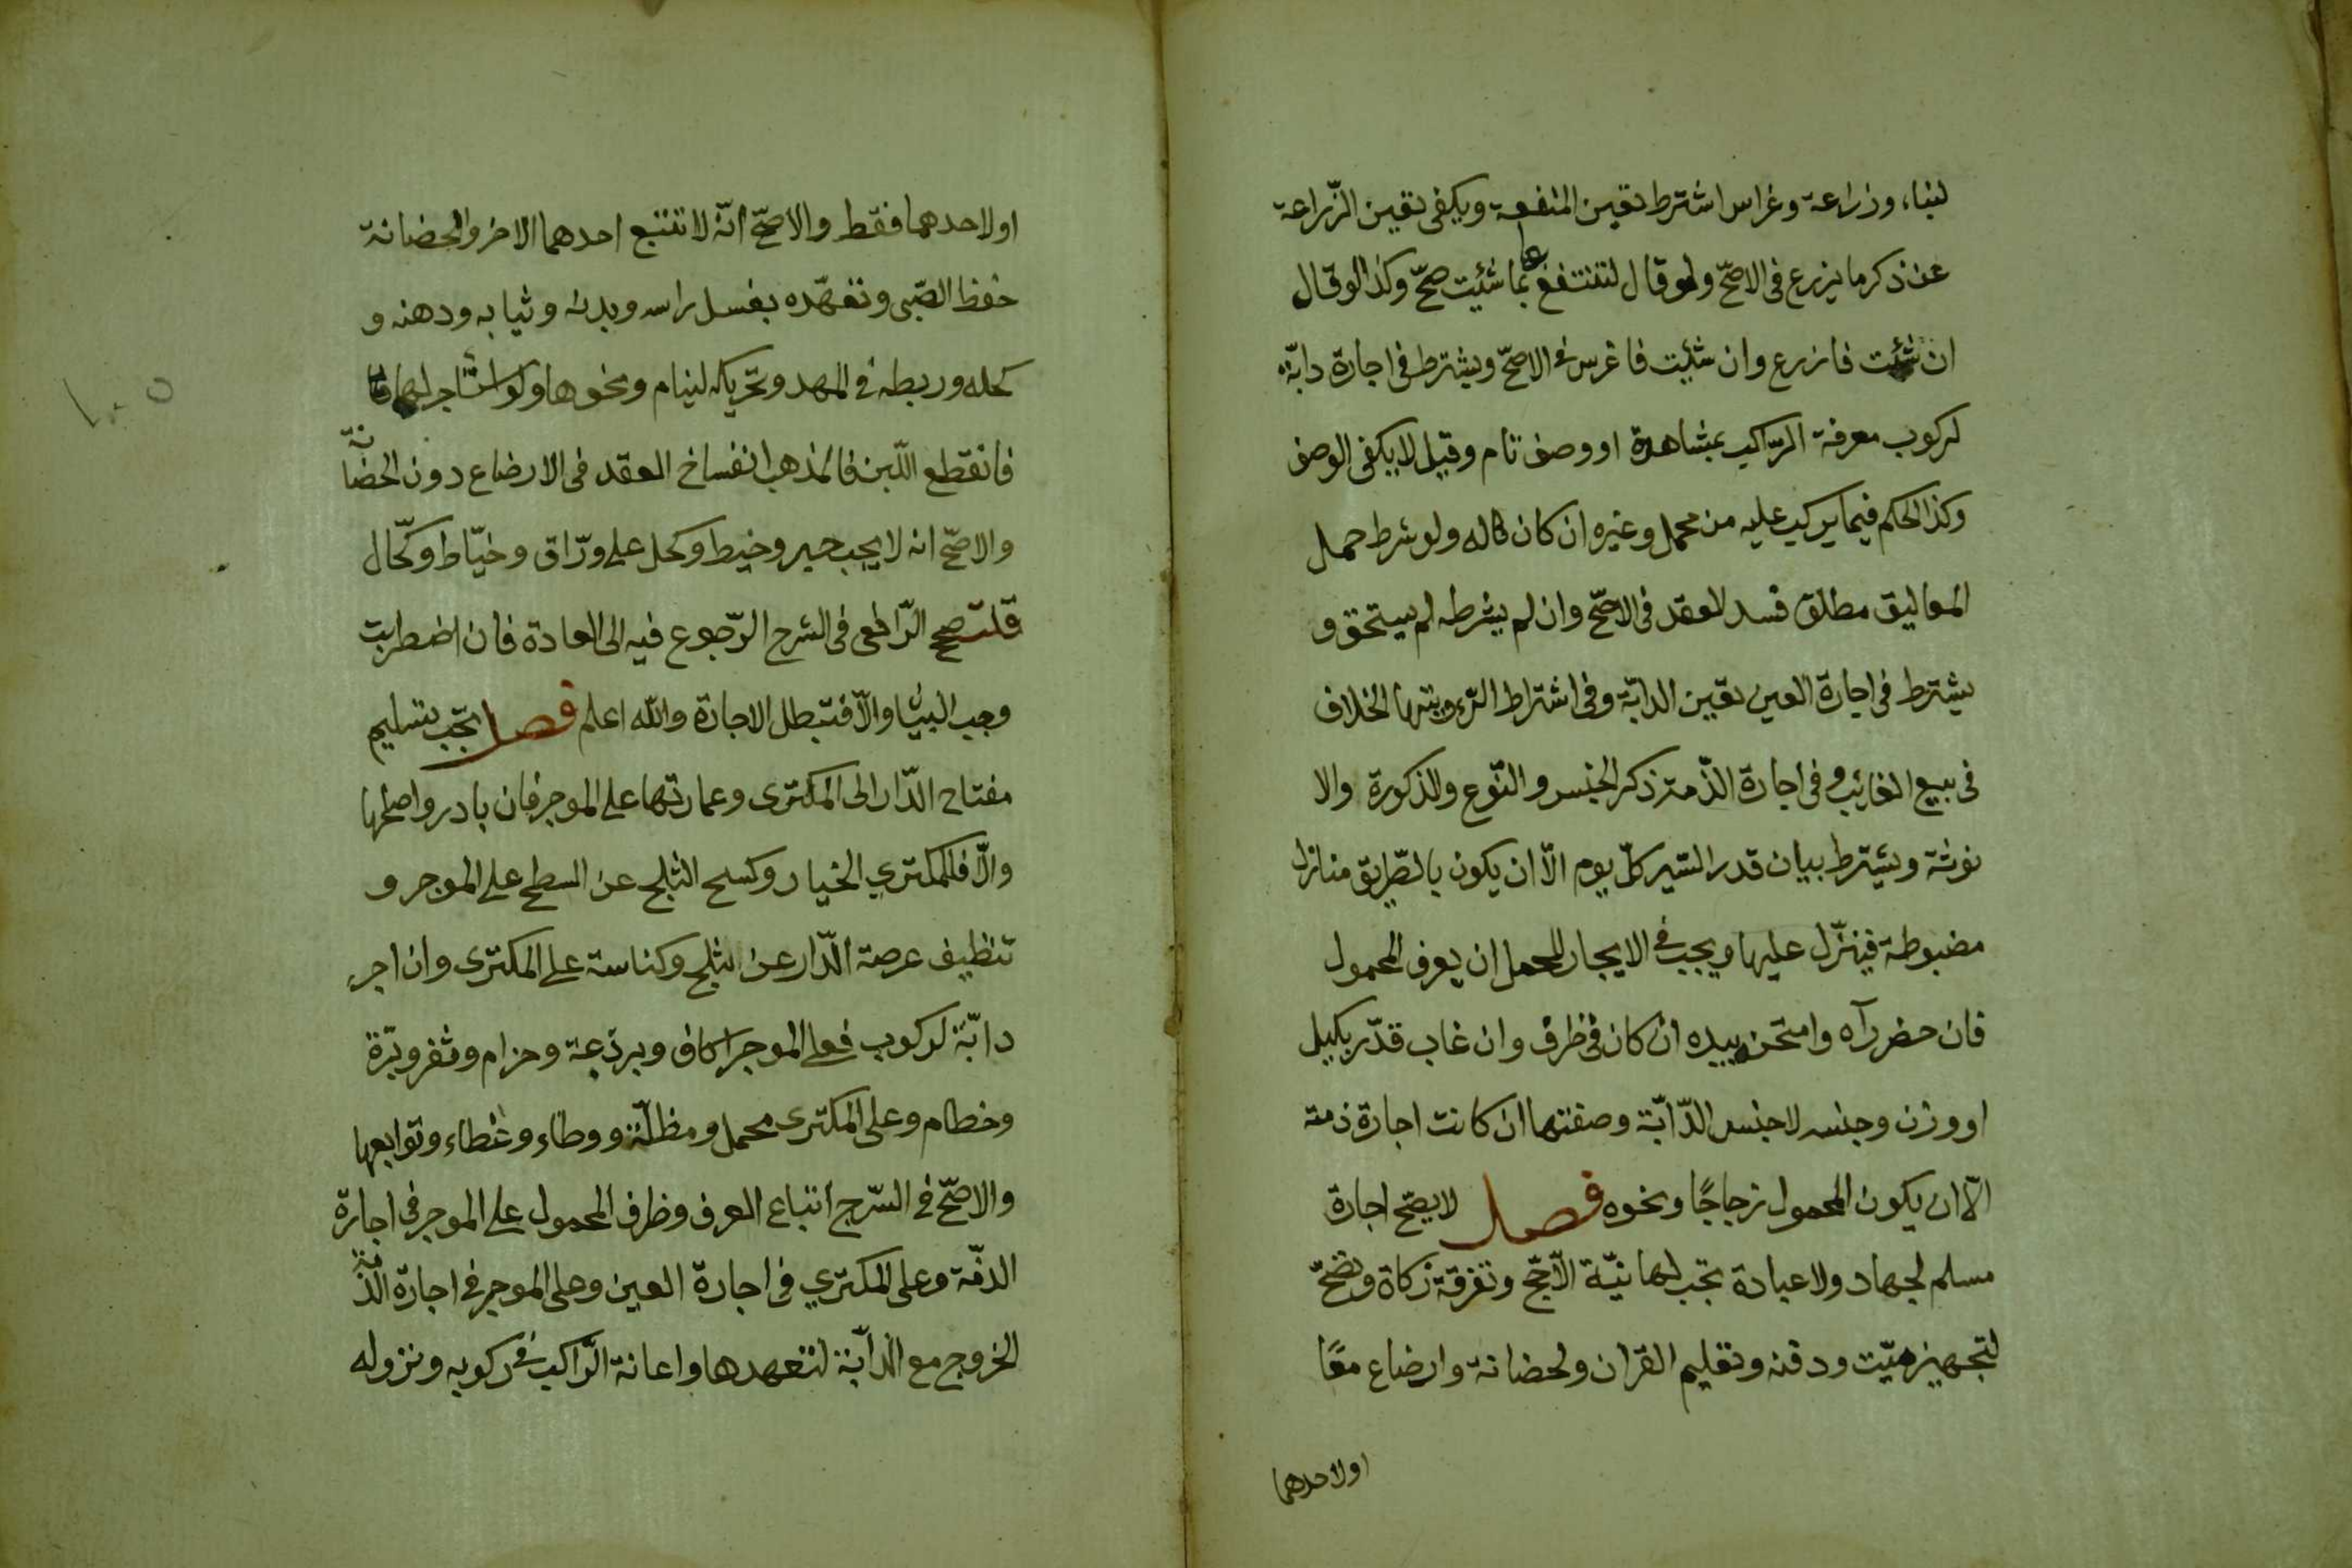 لبناء وزراعة وغراس اشترط تعيين المنفعة ويكفى تعيين الزّراعة
عن ذكر ما يزرع فى الاصحّ ولو قال لتنتفع بها بما شئيت صحّ وكذا لو قال
ان شئت فازرع وان شئيت فاغرس فى الاصحّ ويشترط فى اجارة دابّة
لركوب معرفة الرّاكب بمشاهدة او وصف تام وقيل لا يكفى الوصف
وكذا الحكم فيما يركب عليه من محمل وغيره ان كان له ولو شرط حمل
المعاليق مطلق فسد العقد فى الاصحّ وان لم يشرطه لم يستحق و
يشترط فى اجارة العين تعيين الدابّة وفى اشتراط الرّويتها الخلاف
فى بيع الغائب وفى اجارة الذّمة ذكر الجنس والنّوع والذكورة والا
نوثة ويشترط بيان قدر السّير كلّ يوم الّا ان يكون بالطّريق منازل
مضبوطة فينزّل عليها ويجب فى الايجار للحمل ان يعرف المحمول
فان حضر رآه وامتحن بيده ان كان فى ظرف وان غاب قدّر بكيل
او وزن وجنسه لا جنس الدّابّة وصفتها ان كانت اجارة ذمة
الّا ان يكون المحمول زجاجًا ونحوه فصل لا يصحّ اجارة
مسلم لجهاد ولا عبادة تجب لها نيّة الّا حجّ وتفرقة زكاة وتصحّ
لتجهيز ميّت ودفنه وتعليم القران ولحضانة وارضاع معًا
اولاحدهما
اولاحدهما فقط والاصحّ انّه لا تتبع احدهما الاخر والحضانة
حفظ الصّبى وتعهّده بغسل راسه وبدنه وثيابه ودهنه و
كحله وربطه فى المهد وتحريكه لينام ونحوها ولو استاجر لهما
فانقطع اللّبن فالمذهب انفساخ العقد فى الارضاع دون الحضانة
والاصحّ انه لا يجب حبر وخيط وكحل على ورّاق وخيّاط وكحّال
قلت صحح الرّافعى فى الشرح الرّجوع فيه الى العادة فان اضطربت
وجب البيان والّا فتبطل الاجارة والله اعلم فصل يجب تسليم
مفتاح الدّار الى المكترى وعمارتها على الموجر فان بادر واصلحها
والّا فللمكتري الخيار وكسح الثلج عن السطح على الموجر و
تنظيف عرصة الدّار عن الثلج وكناسة على المكترى وان اجر
دابّة لركوب فعلى الموجر اكاف وبرذعة وحزام وثفر وبرة
وخطام وعلى المكترى محمل ومظلّة ووطاء وغطاء وتوابعها
والاصحّ فى السّرج اتباع العرف وظرف المحمول على الموجر فى اجارة
الذمّة وعلى المكتري فى اجارة العين وعلى الموجر فى اجارة الذّمة
الخروج مع الدابّة لتعهدها واعانة الرّاكب فى ركوبه ونزوله